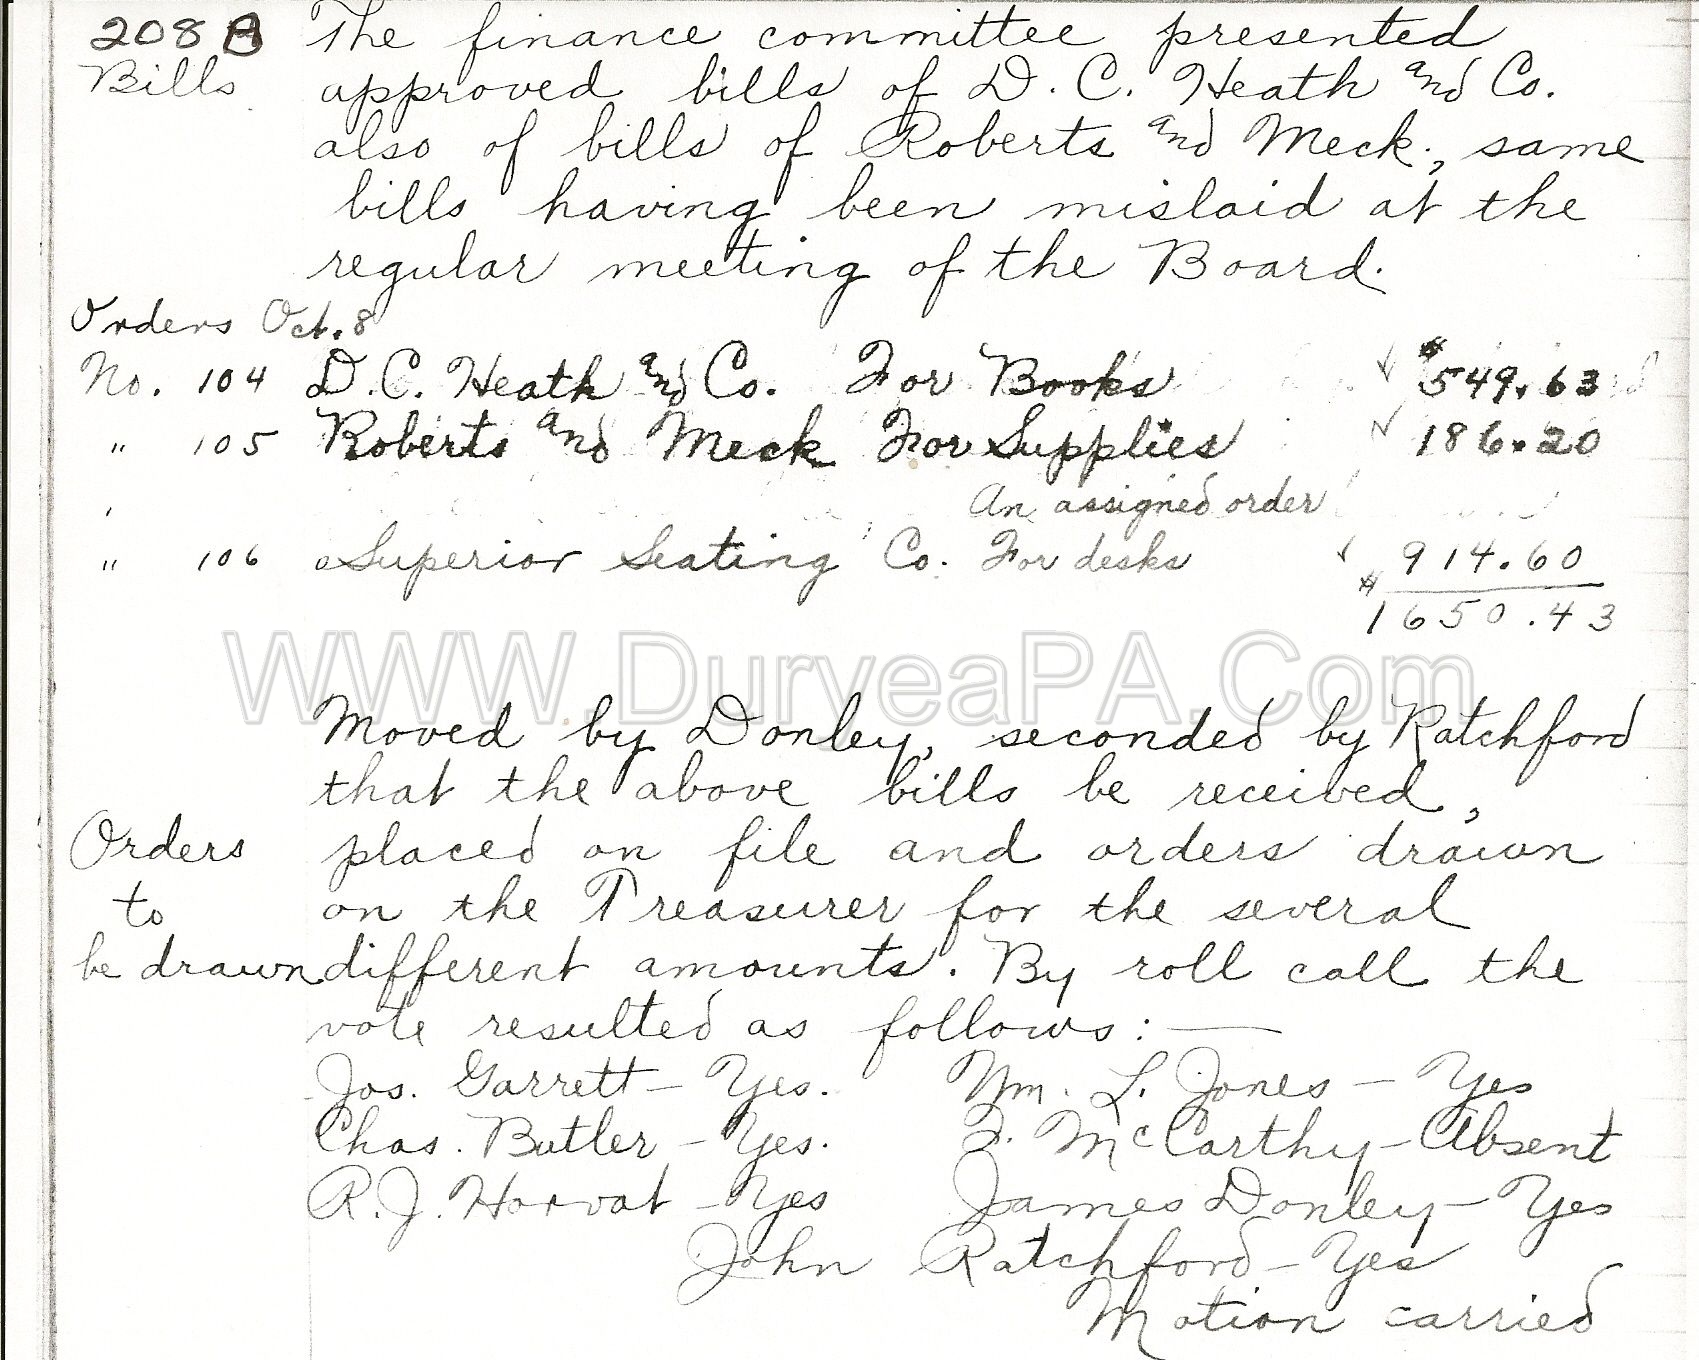 208 A The finance committee presented
Bills approved bills of D. C. Heath and Co.
also of bills of Roberts and Meck; same
bills having been mislaid at the
regular meeting of the Board.
Orders Oct. 8
No. 104 D. C. Heath and Co. For Books √ $549.63
" 105 Roberts and Meck For Supplies √ 186.20
An assigned order
" 106 Superior Seating Co. For desks √ 914.60
$1650.43
WWW.DuryeaPA.Com
Moved by Donley, seconded by Ratchford
that the above bills be received,
Orders placed on file and orders drawn
to on the Treasurer for the several
be drawn different amounts. By roll call the
vote resulted as follows:—
Jos. Garrett – Yes. Wm. L. Jones – Yes
Chas. Butler – Yes. F. McCarthy – Absent
R. J. Horvat – Yes James Donley – Yes
John Ratchford – Yes
Motion carried